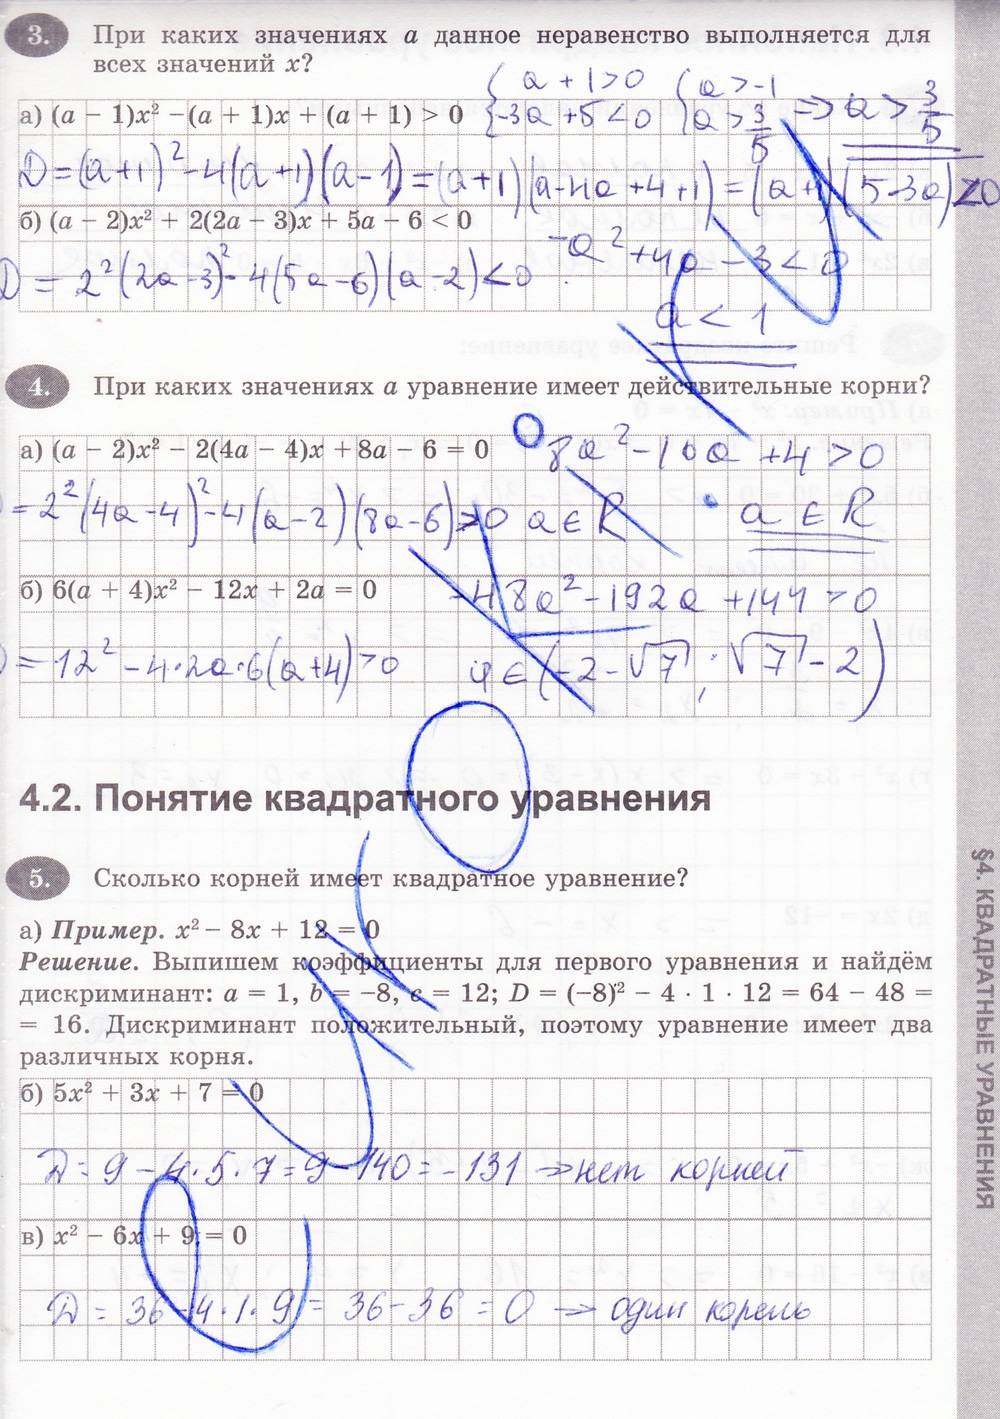 3. При каких значениях a данное неравенство выполняется для
всех значений x?
{ a + 1 > 0 { a > -1
а) (a − 1)x² −(a + 1)x + (a + 1) > 0 { -3a + 5 < 0 { a > 3/5 => a > 3/5
D = (a+1)² - 4(a+1)(a-1) = (a+1)(a-4a+4+1) = (a+1)(5-3a) < 0
б) (a − 2)x² + 2(2a − 3)x + 5a − 6 < 0
-a² + 4a - 3 < 0
D = 2²(2a-3)² - 4(5a-6)(a-2) < 0
a < 1
4. При каких значениях a уравнение имеет действительные корни?
а) (a − 2)x² − 2(4a − 4)x + 8a − 6 = 0 8a² - 16a + 4 > 0
= 2²(4a-4)² - 4(a-2)(8a-6) > 0 a ∈ R a ∈ R
б) 6(a + 4)x² − 12x + 2a = 0 -48a² - 192a + 144 > 0
= 12² - 4·2a·6(a+4) > 0 a ∈ (-2-√7; √7-2)
4.2. Понятие квадратного уравнения
5. Сколько корней имеет квадратное уравнение?
а) Пример. x² − 8x + 12 = 0
Решение. Выпишем коэффициенты для первого уравнения и найдём
дискриминант: a = 1, b = −8, c = 12; D = (−8)² − 4 · 1 · 12 = 64 − 48 =
= 16. Дискриминант положительный, поэтому уравнение имеет два
различных корня.
б) 5x² + 3x + 7 = 0
D = 9 - 4·5·7 = 9 - 140 = -131 → нет корней
в) x² − 6x + 9 = 0
D = 36 - 4·1·9 = 36 - 36 = 0 → один корень
§4. КВАДРАТНЫЕ УРАВНЕНИЯ